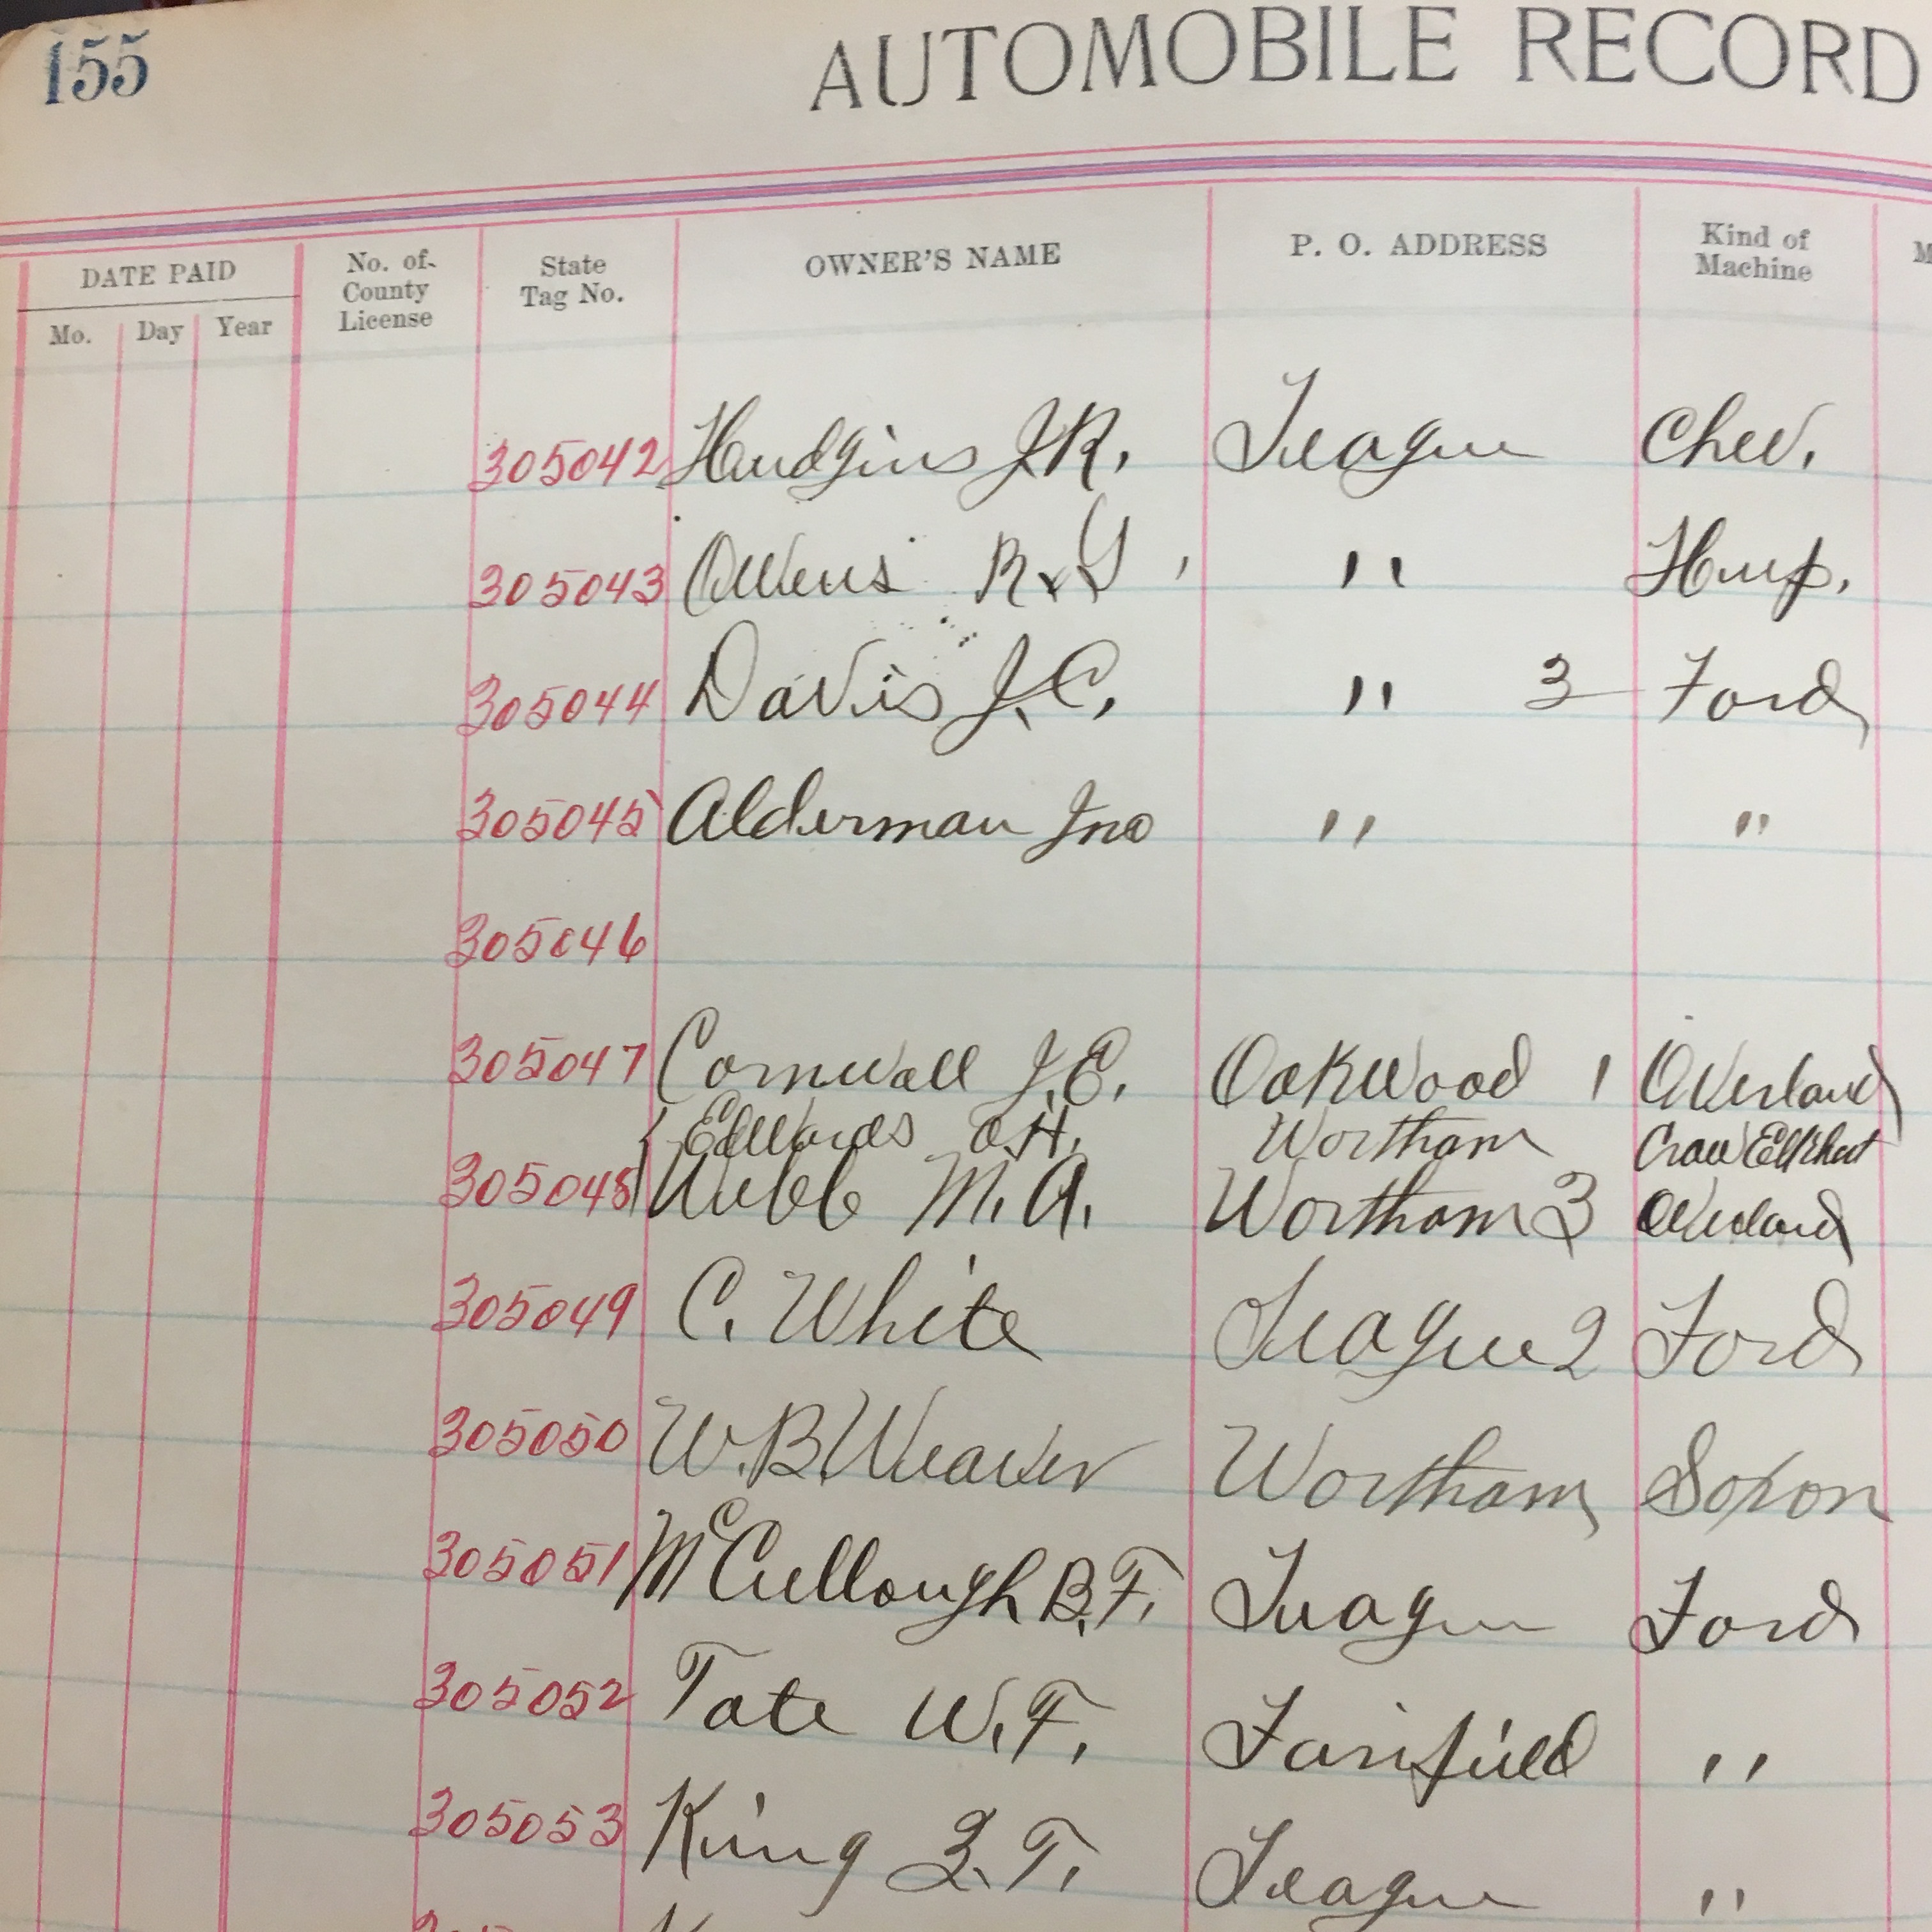 155
AUTOMOBILE RECORD
DATE PAID No. of County License State Tag No. OWNER'S NAME P. O. ADDRESS Kind of Machine M
Mo. Day Year
305042 Hudgins J.R. Teague Chev.
305043 Owens R.Y, " Hup.
305044 Davis J.C. " 3 Ford
305045 Alderman Jno " "
305046
305047 Cornwall J.E. Oakwood 1 Overland
Edwards O.H. Wortham Crow Elkhart
305048 Webb M.A. Wortham 3 Overland
305049 C. White Teague 2 Ford
305050 W.B. Weaver Wortham Soxon
305051 McCullough B.F. Teague Ford
305052 Tate W.F. Fairfield "
305053 King Z.T. Teague "